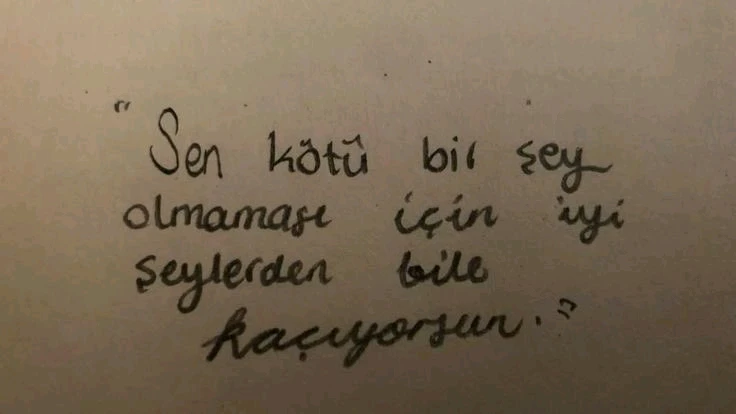 "Sen kötü bir şey
olmaması için iyi
şeylerden bile
kaçıyorsun."